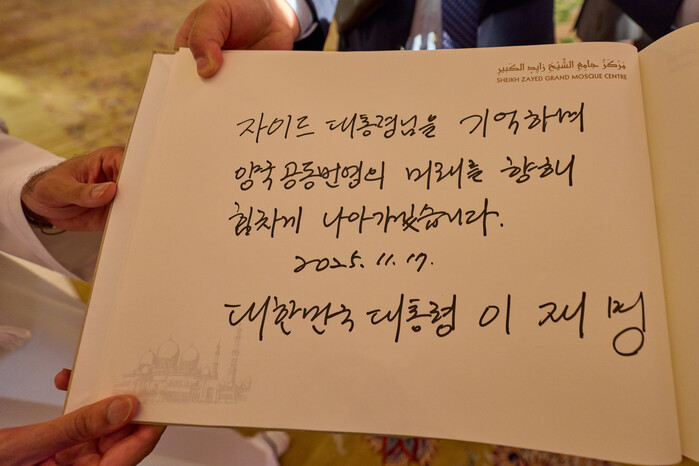 مركز جامع الشيخ زايد الكبير
SHEIKH ZAYED GRAND MOSQUE CENTRE
자이드 대통령님을 기억하며
양국 공동번영의 미래를 향해
힘차게 나아가겠습니다.
2025. 11. 17.
대한민국 대통령 이 재 명